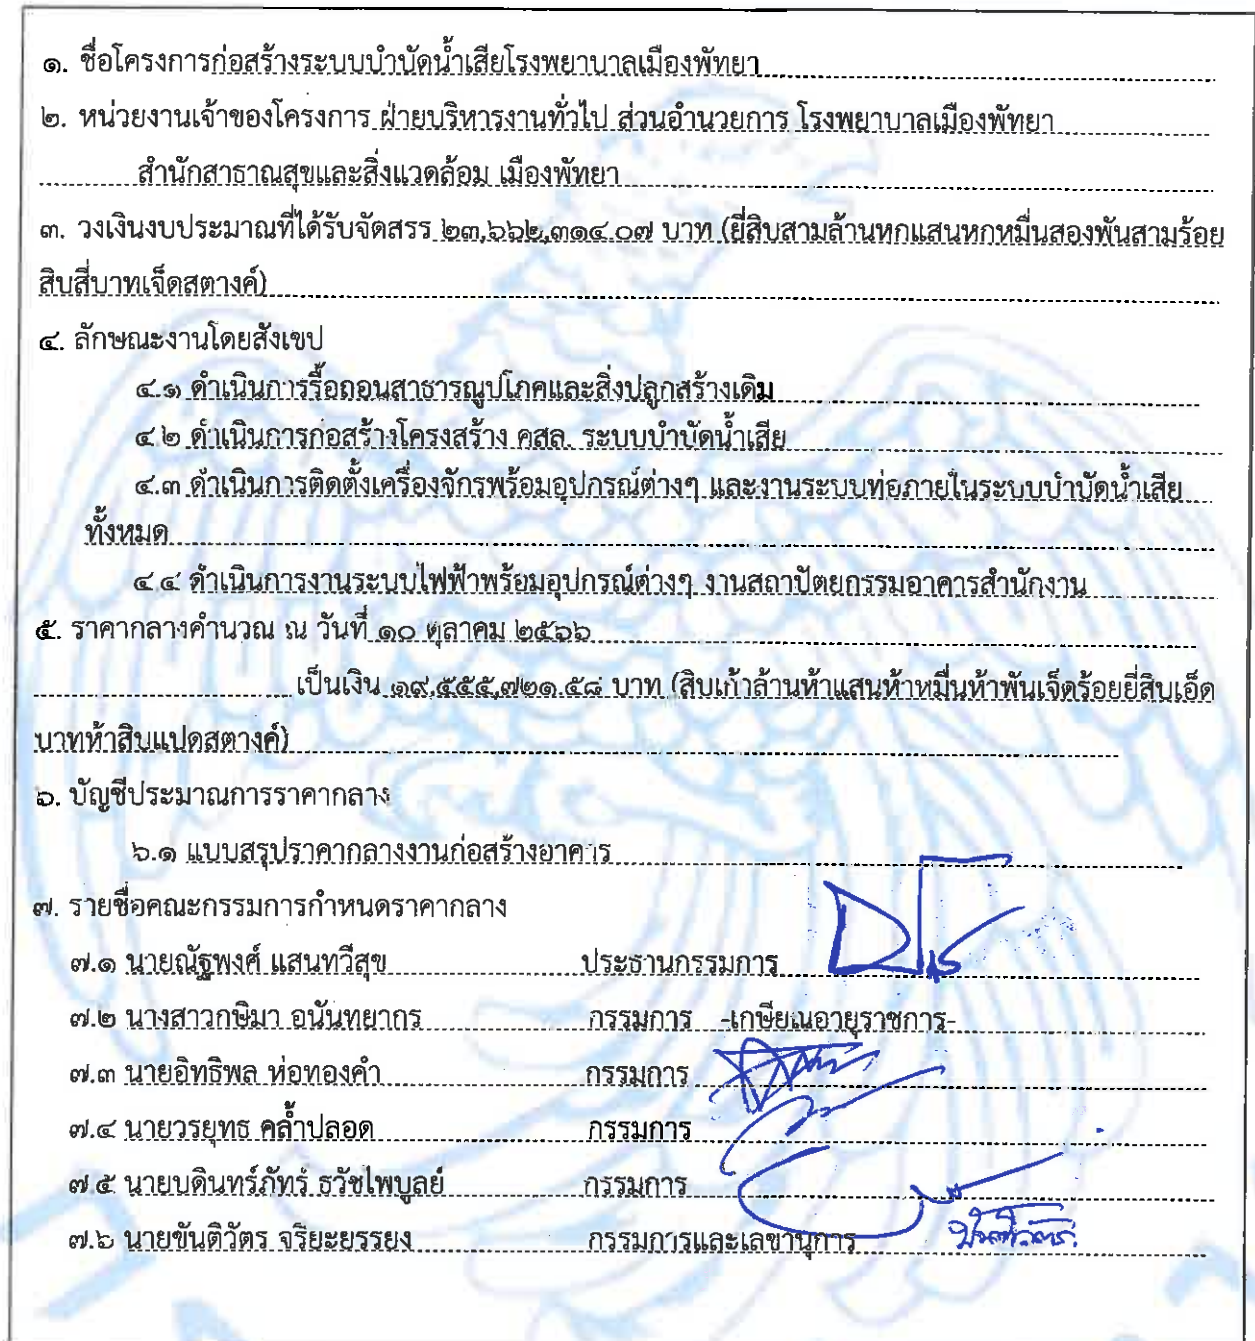 ๑. ชื่อโครงการก่อสร้างระบบบำบัดน้ำเสียโรงพยาบาลเมืองพัทยา
๒. หน่วยงานเจ้าของโครงการ ฝ่ายบริหารงานทั่วไป ส่วนอำนวยการ โรงพยาบาลเมืองพัทยา
สำนักสาธาณสุขและสิ่งแวดล้อม เมืองพัทยา
๓. วงเงินงบประมาณที่ได้รับจัดสรร ๒๓,๖๖๒,๓๑๔.๐๗ บาท (ยี่สิบสามล้านหกแสนหกหมื่นสองพันสามร้อย
สิบสี่บาทเจ็ดสตางค์)
๔. ลักษณะงานโดยสังเขป
๔.๑ ดำเนินการรื้อถอนสาธารณูปโภคและสิ่งปลูกสร้างเดิม
๔.๒ ดำเนินการก่อสร้างโครงสร้าง คสล. ระบบบำบัดน้ำเสีย
๔.๓ ดำเนินการติดตั้งเครื่องจักรพร้อมอุปกรณ์ต่างๆ และงานระบบท่อภายในระบบบำบัดน้ำเสีย
ทั้งหมด
๔.๔ ดำเนินการงานระบบไฟฟ้าพร้อมอุปกรณ์ต่างๆ งานสถาปัตยกรรมอาคารสำนักงาน
๕. ราคากลางคำนวณ ณ วันที่ ๑๐ ตุลาคม ๒๕๖๖
เป็นเงิน ๑๙,๕๕๕,๗๒๑.๕๘ บาท (สิบเก้าล้านห้าแสนห้าหมื่นห้าพันเจ็ดร้อยยี่สิบเอ็ด
บาทห้าสิบแปดสตางค์)
๖. บัญชีประมาณการราคากลาง
๖.๑ แบบสรุปราคากลางงานก่อสร้างอาคาร
๗. รายชื่อคณะกรรมการกำหนดราคากลาง
๗.๑ นายณัฐพงศ์ แสนทวีสุข ประธานกรรมการ
๗.๒ นางสาวกษิมา อนันทยากร กรรมการ -เกษียณอายุราชการ-
๗.๓ นายอิทธิพล ห่อทองคำ กรรมการ
๗.๔ นายวรยุทธ คล้ำปลอด กรรมการ
๗.๕ นายบดินทร์ภัทร์ ธวัชไพบูลย์ กรรมการ
๗.๖ นายขันติวัตร จริยะยรรยง กรรมการและเลขานุการ